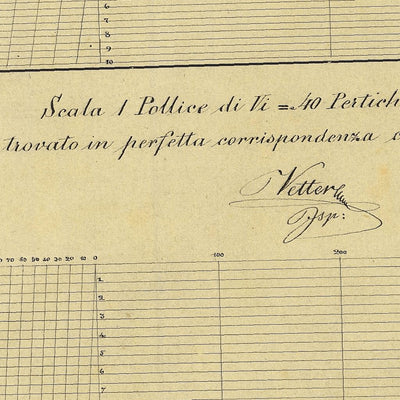 8
9
10
Scala 1 Pollice di Vi = 40 Pertich
trovato in perfetta corrispondenza c
Vetter
Isp:
70 60 50 40 30 20 10 0 100 200
1
2
3
4
5
6
7
8